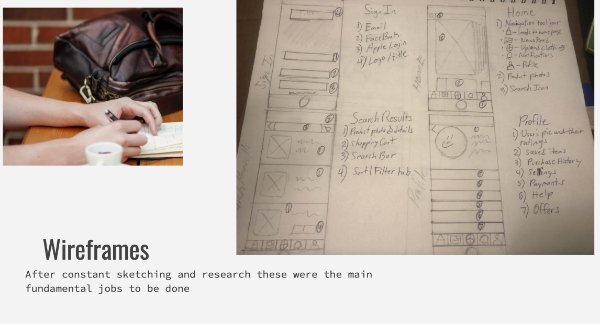 Sign In
1) Email
2) FaceBook
3) Apple Login
4) Logo/title
Home
1) Navigation tool bar
2) Product photos
3) Search Icon
Search Results
1) Product photo & details
2) Shopping Cart
3) Search Bar
4) Sort/Filter tab
Profile
1) Users pic and their
ratings
2) Saved items
3) Purchase History
4) Settings
5) Payments
6) Help
7) Offers
Wireframes
After constant sketching and research these were the main
fundamental jobs to be done